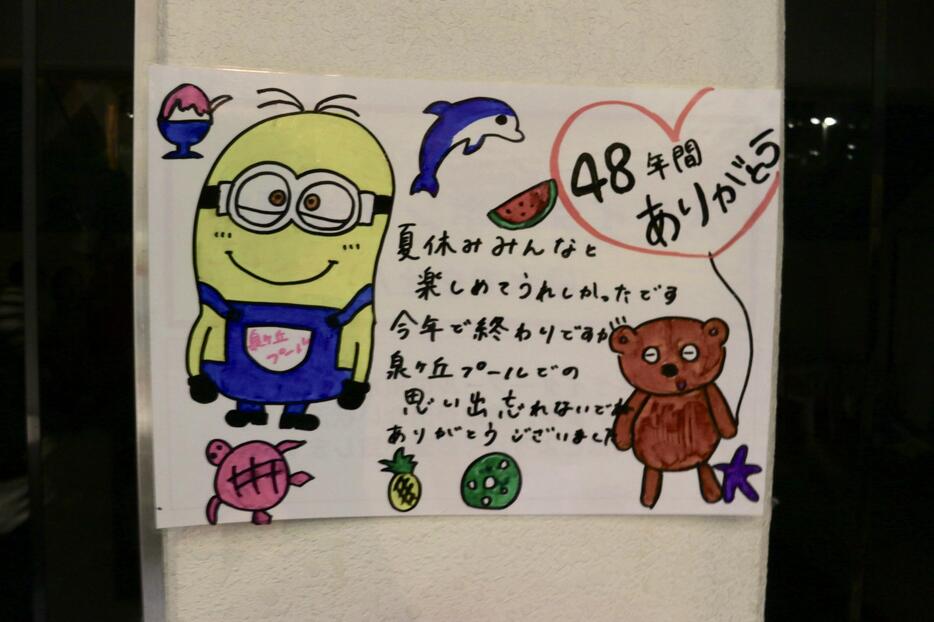 48年間
ありがとう
夏休みみんなと
楽しめてうれしかったです
今年で終わりですが
泉ヶ丘プールでの
思い出忘れないでね
ありがとうございました
泉ヶ丘
プール